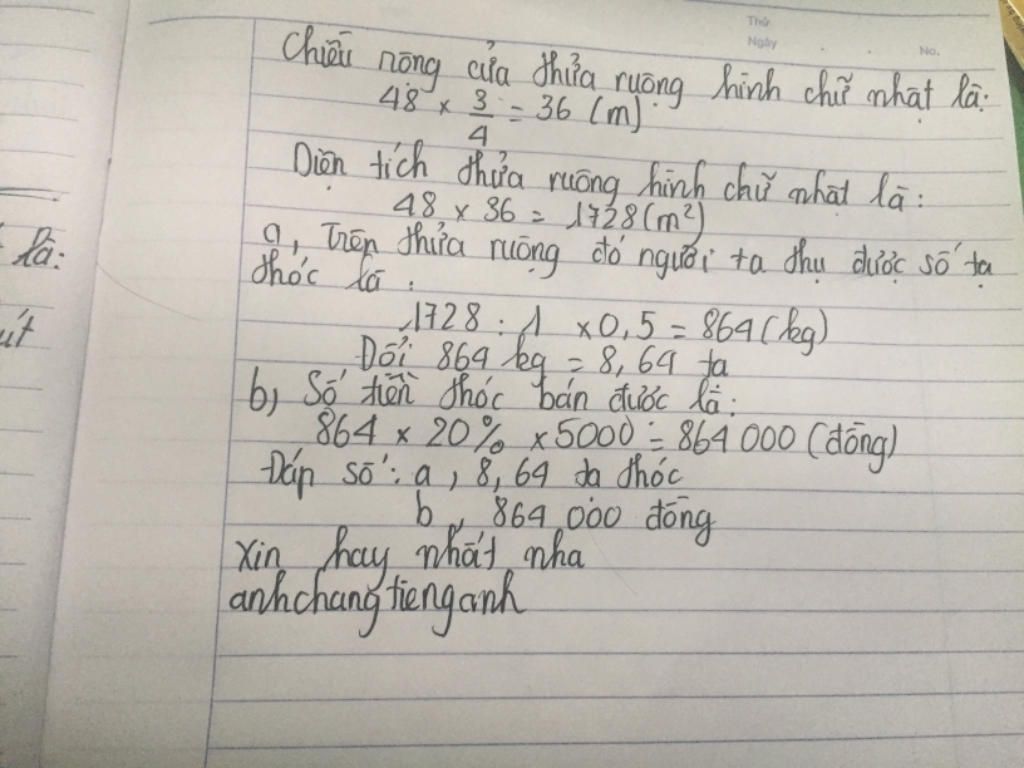 Thứ
Ngày . . No.
Chiều rộng của thửa ruộng hình chữ nhật là:
48 × 3/4 = 36 (m)
Diện tích thửa ruộng hình chữ nhật là:
48 × 36 = 1728 (m²)
a, Trên thửa ruộng đó người ta thu được số tạ
thóc là :
1728 : 1 × 0,5 = 864 (kg)
Đổi 864 kg = 8,64 tạ
b, Số tiền thóc bán được là:
864 × 20% × 5000 = 864 000 (đồng)
Đáp số: a, 8,64 tạ thóc
b, 864 000 đồng
Xin hay nhất nha
anhchangtienganh
là: